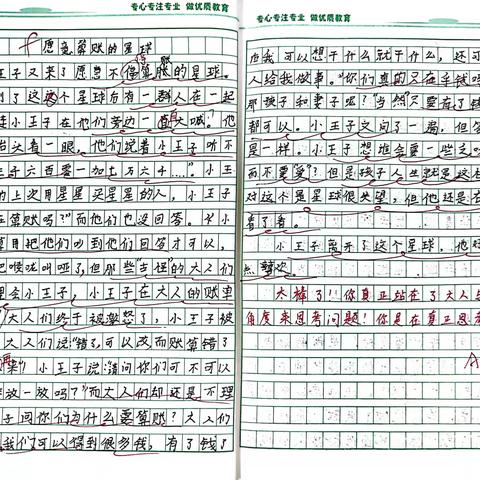 专心专注专业 做优质教育
愿意算账的星球
王子又来了愿意不停算账的星球。
到了这个星球后有一群人在一起
小王子在他们旁边一直大喊。他
一眼。他们说着小王子听不
千六百零一加七万六千……"小王
上次用星星买星星的人，小王子
算账吗？"而他们也没回答。小
算目把他们吵到他们回答才可以，
把喉咙叫哑了，但那些"古怪"的大人们
理会小王子，小王子在大人的账单
大人们终于被激怒了，小王子被
大人们说"错了可以改而账算错了
来"小王子说："请问你们可不可以
放一放吗？"而大人们却还是不理
子问你们为什么要算账？大人们
我们可以得到很多钱，有了钱了
专心专注专业 做优质教育
后我可以想干什么就干什么，还可
人给我做事。"你们真的只在乎钱吗
那孩子和妻子呢？""当然"只要有了钱
都可以。小王子又问了一遍，但答
是一样。小王子想谁会要一些
而不要爱？但是孩子人生就是这
对这个星星球很失望，但他还是在
看了看。
小王子离开了这个星球，他
喜欢
大棒了!!你真正站在了大人
角度来思考问题！你是在真正思考
A